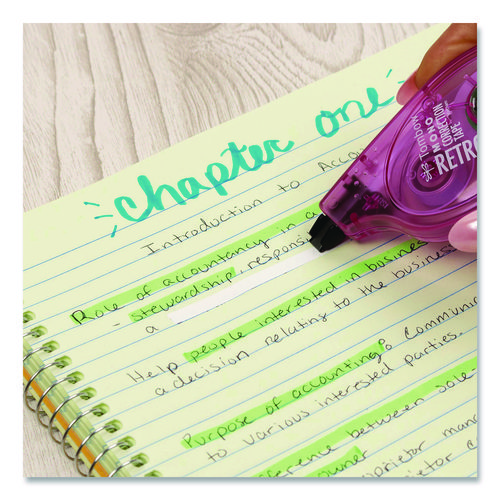 chapter one
Introduction to Acco
Role of accountancy in a
- stewardship responsi
a
Help people interested in business
a decision relating to the business
Purpose of accounting: Communi
to various interested parties.
ference between sole-
owner
prietor man
prietor
Tombow
MONO
CORRECTION
TAPE
RETRO